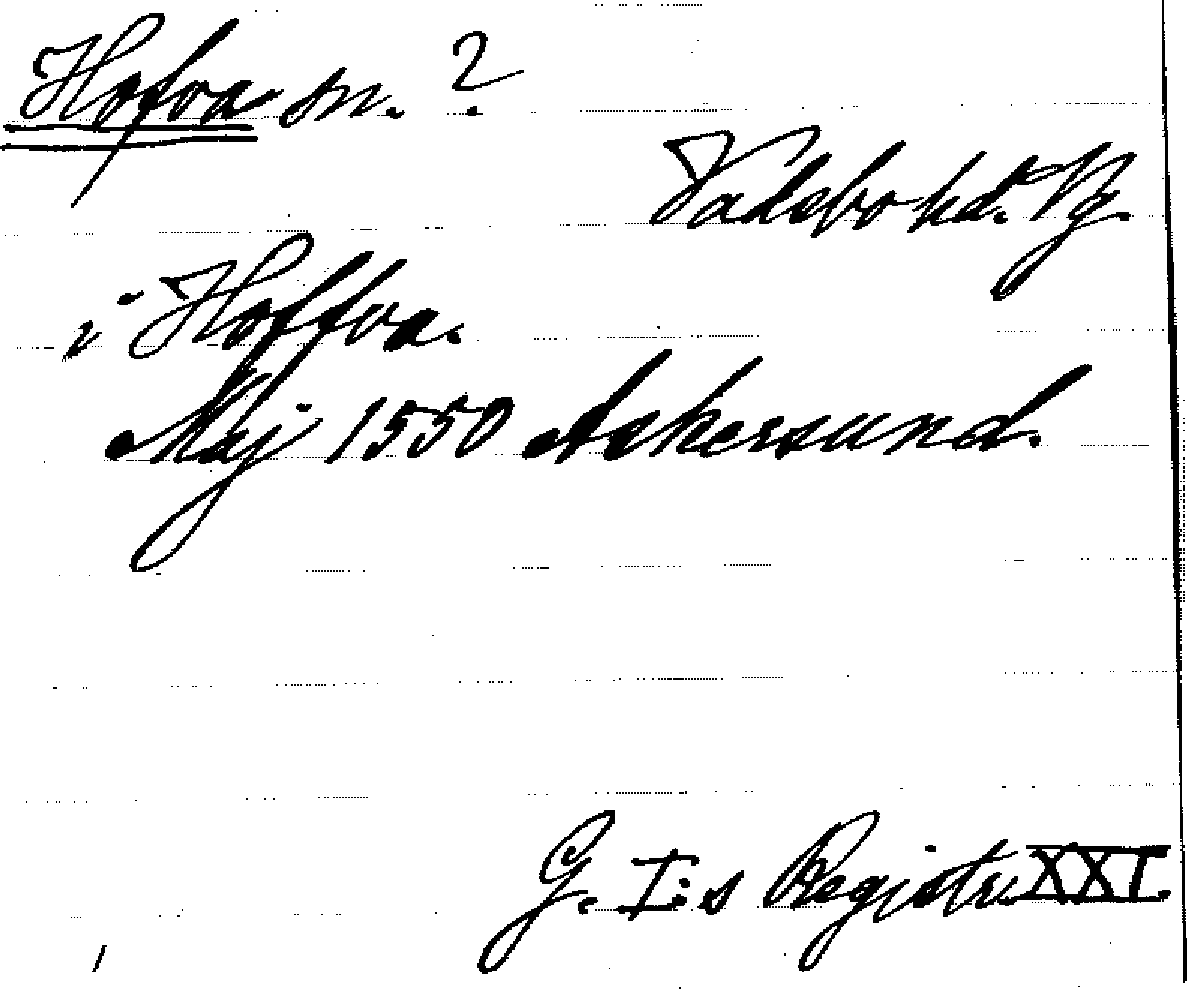 Hofva sn. ?
Vadsbo hd. Vg.
i Hoffva.
Maj 1550 Askersund.
G. I:s Registr. XXI.